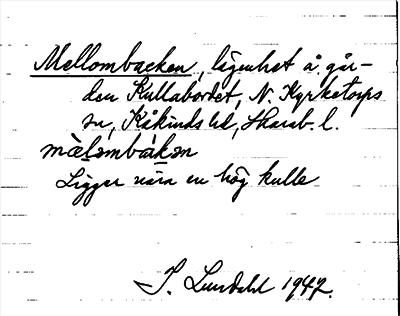 Mellombacken, lägenhet å går-
den Kullabordet, N. Kyrketorps
sn, Kåkinds hd, Skarab. l.
mèl̬ɘmbàkɘn
Ligger nära en hög kulle
S. Lundahl 1942.